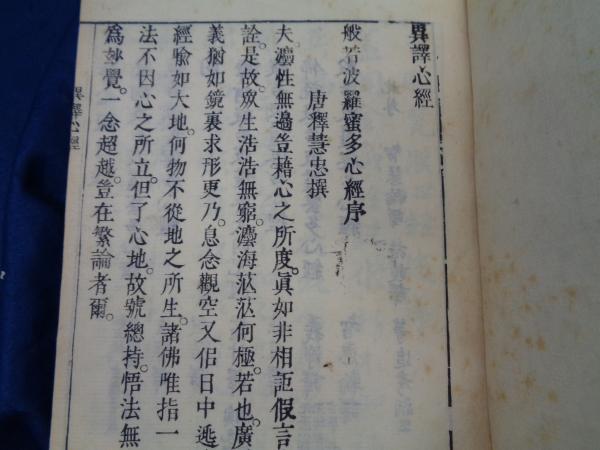 異譯心經
般若波羅蜜多心經序
唐釋慧忠撰
夫。灋性無邊。豈藉心之所度。眞如非相。詎假言
詮。是故。眾生浩浩無窮。灋海茫茫何極。若也。廣
義猶如鏡裏求形。更乃。息念觀空。又佀日中逃
經喩如大地。何物不從地之所生。諸佛唯指一
法不因心之所立。但了心地。故號總持。悟法無
爲妙覺。一念超越。豈在繁論者爾。
異譯心經